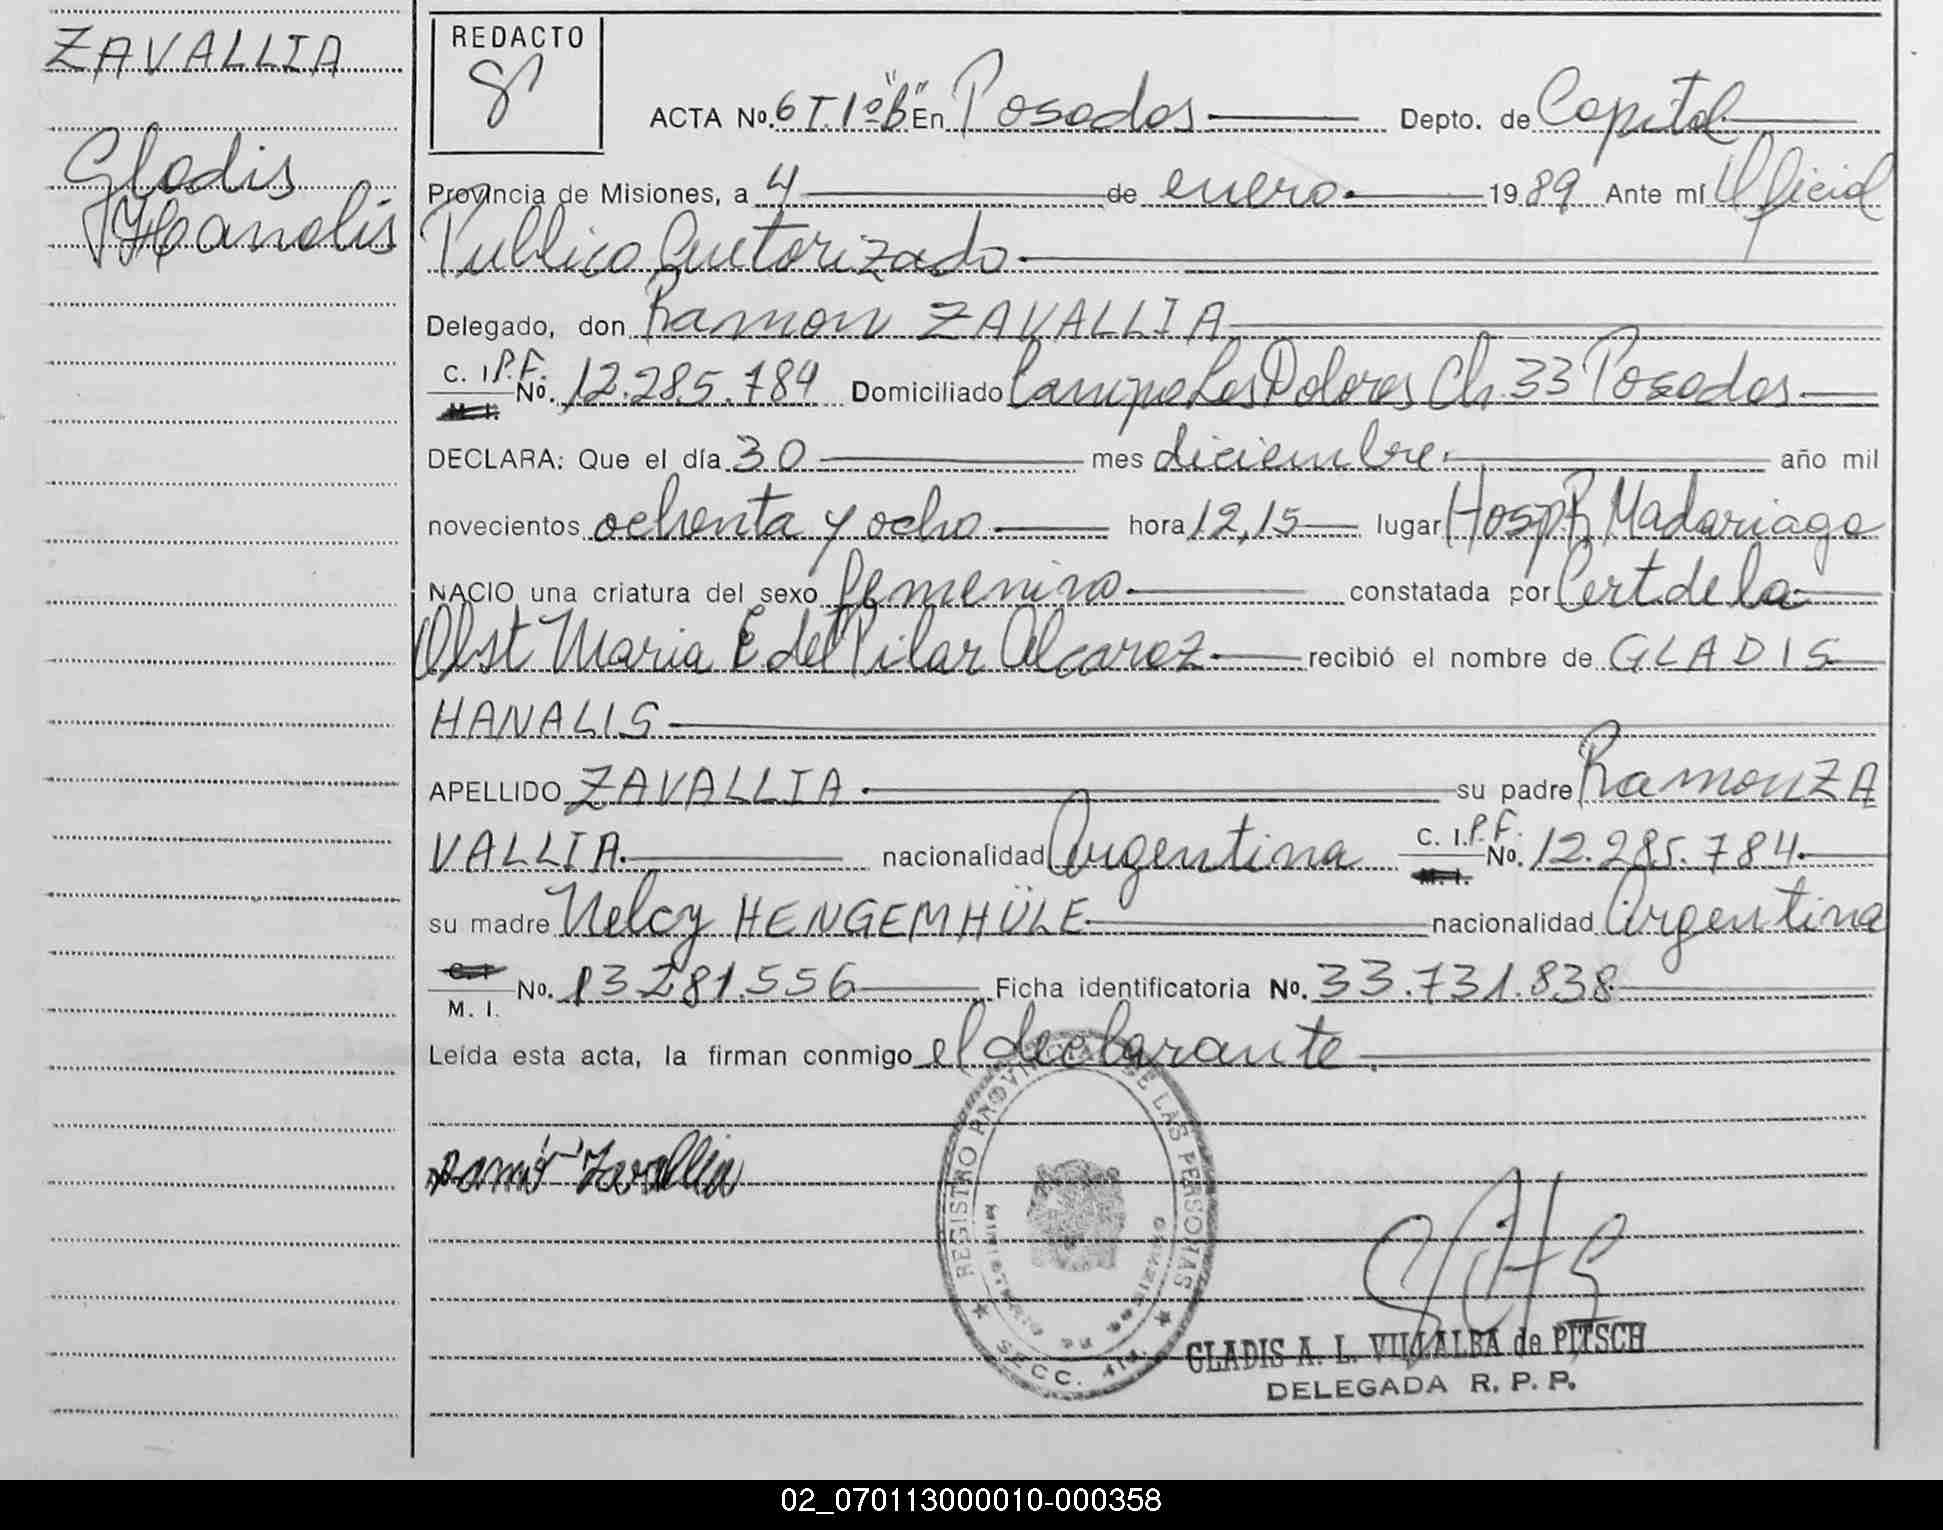 ZAVALLIA
Gladis
Hanalis
REDACTO
ACTA No. 6 T. 1º "B" En Posadas Depto. de Capital
Provincia de Misiones, a 4 de enero 1989 Ante mí Oficial
Publico Autorizado
Delegado, don Ramon ZAVALLIA
C. I. P.F. No. 12.285.784 Domiciliado Campo Los Dolores Ch. 33 Posadas
M. I.
DECLARA: Que el día 30 mes diciembre año mil
novecientos ochenta y ocho hora 12,15 lugar Hosp R. Madariaga
NACIO una criatura del sexo femenino constatada por Cert. de la
Obst Maria E del Pilar Alcaraz recibió el nombre de GLADIS
HANALIS
APELLIDO ZAVALLIA su padre Ramon ZA
VALLIA nacionalidad Argentina C. I. P.F. No. 12.285.784
M. I.
su madre Nelcy HENGEMHÜLE nacionalidad Argentina
C. I.
M. I. No. 13281.556 Ficha identificatoria No. 33.731.838
Leída esta acta, la firman conmigo el declarante
Ramón Zavallia
REGISTRO PROVINCIAL DE LAS PERSONAS
MINISTERIO DE GOBIERNO
SECC. 4ta.
GLADIS A. L. VILLALBA de PITSCH
DELEGADA R. P. P.
02_070113000010-000358